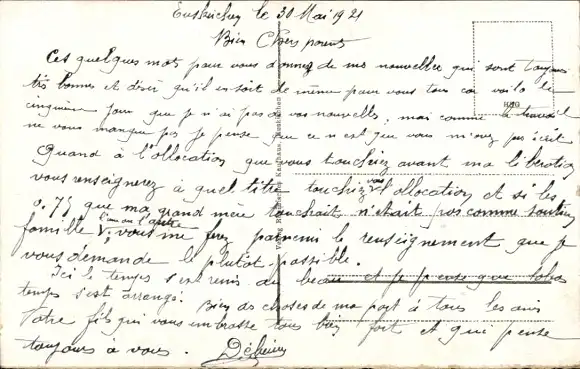 Euskirchen le 30 Mai 1921
Bien Chers parents
Ces quelques mots pour vous donnez de mes nouvelles qui sont toujours
très bonnes et désir qu'il en soit de même pour vous tous car voila le
cinquième jour que je n'ai pas de vos nouvelles, mai comme le travail
ne vous manque pas je pense que ce n'est que vous m'avez pas écrit
Quand à l'allocation que vous touchiez avant ma libération
vous renseignerez à quel titre touchiez vous l'allocation et si les
0.75 que ma grand mère touchait n'était pas comme soutien
l'un ou l'autre
famille, vous me ferez parvenir le renseignement que je
vous demande le plutôt possible.
Ici le temps s'est remis au beau et je pense que
temps s'est arrangé.
Bien des choses de ma part à tous les amis
Votre fils qui vous embrasse tous bien fort et qui pense
toujours à vous.
Verlag Kaufhaus, Euskirchen